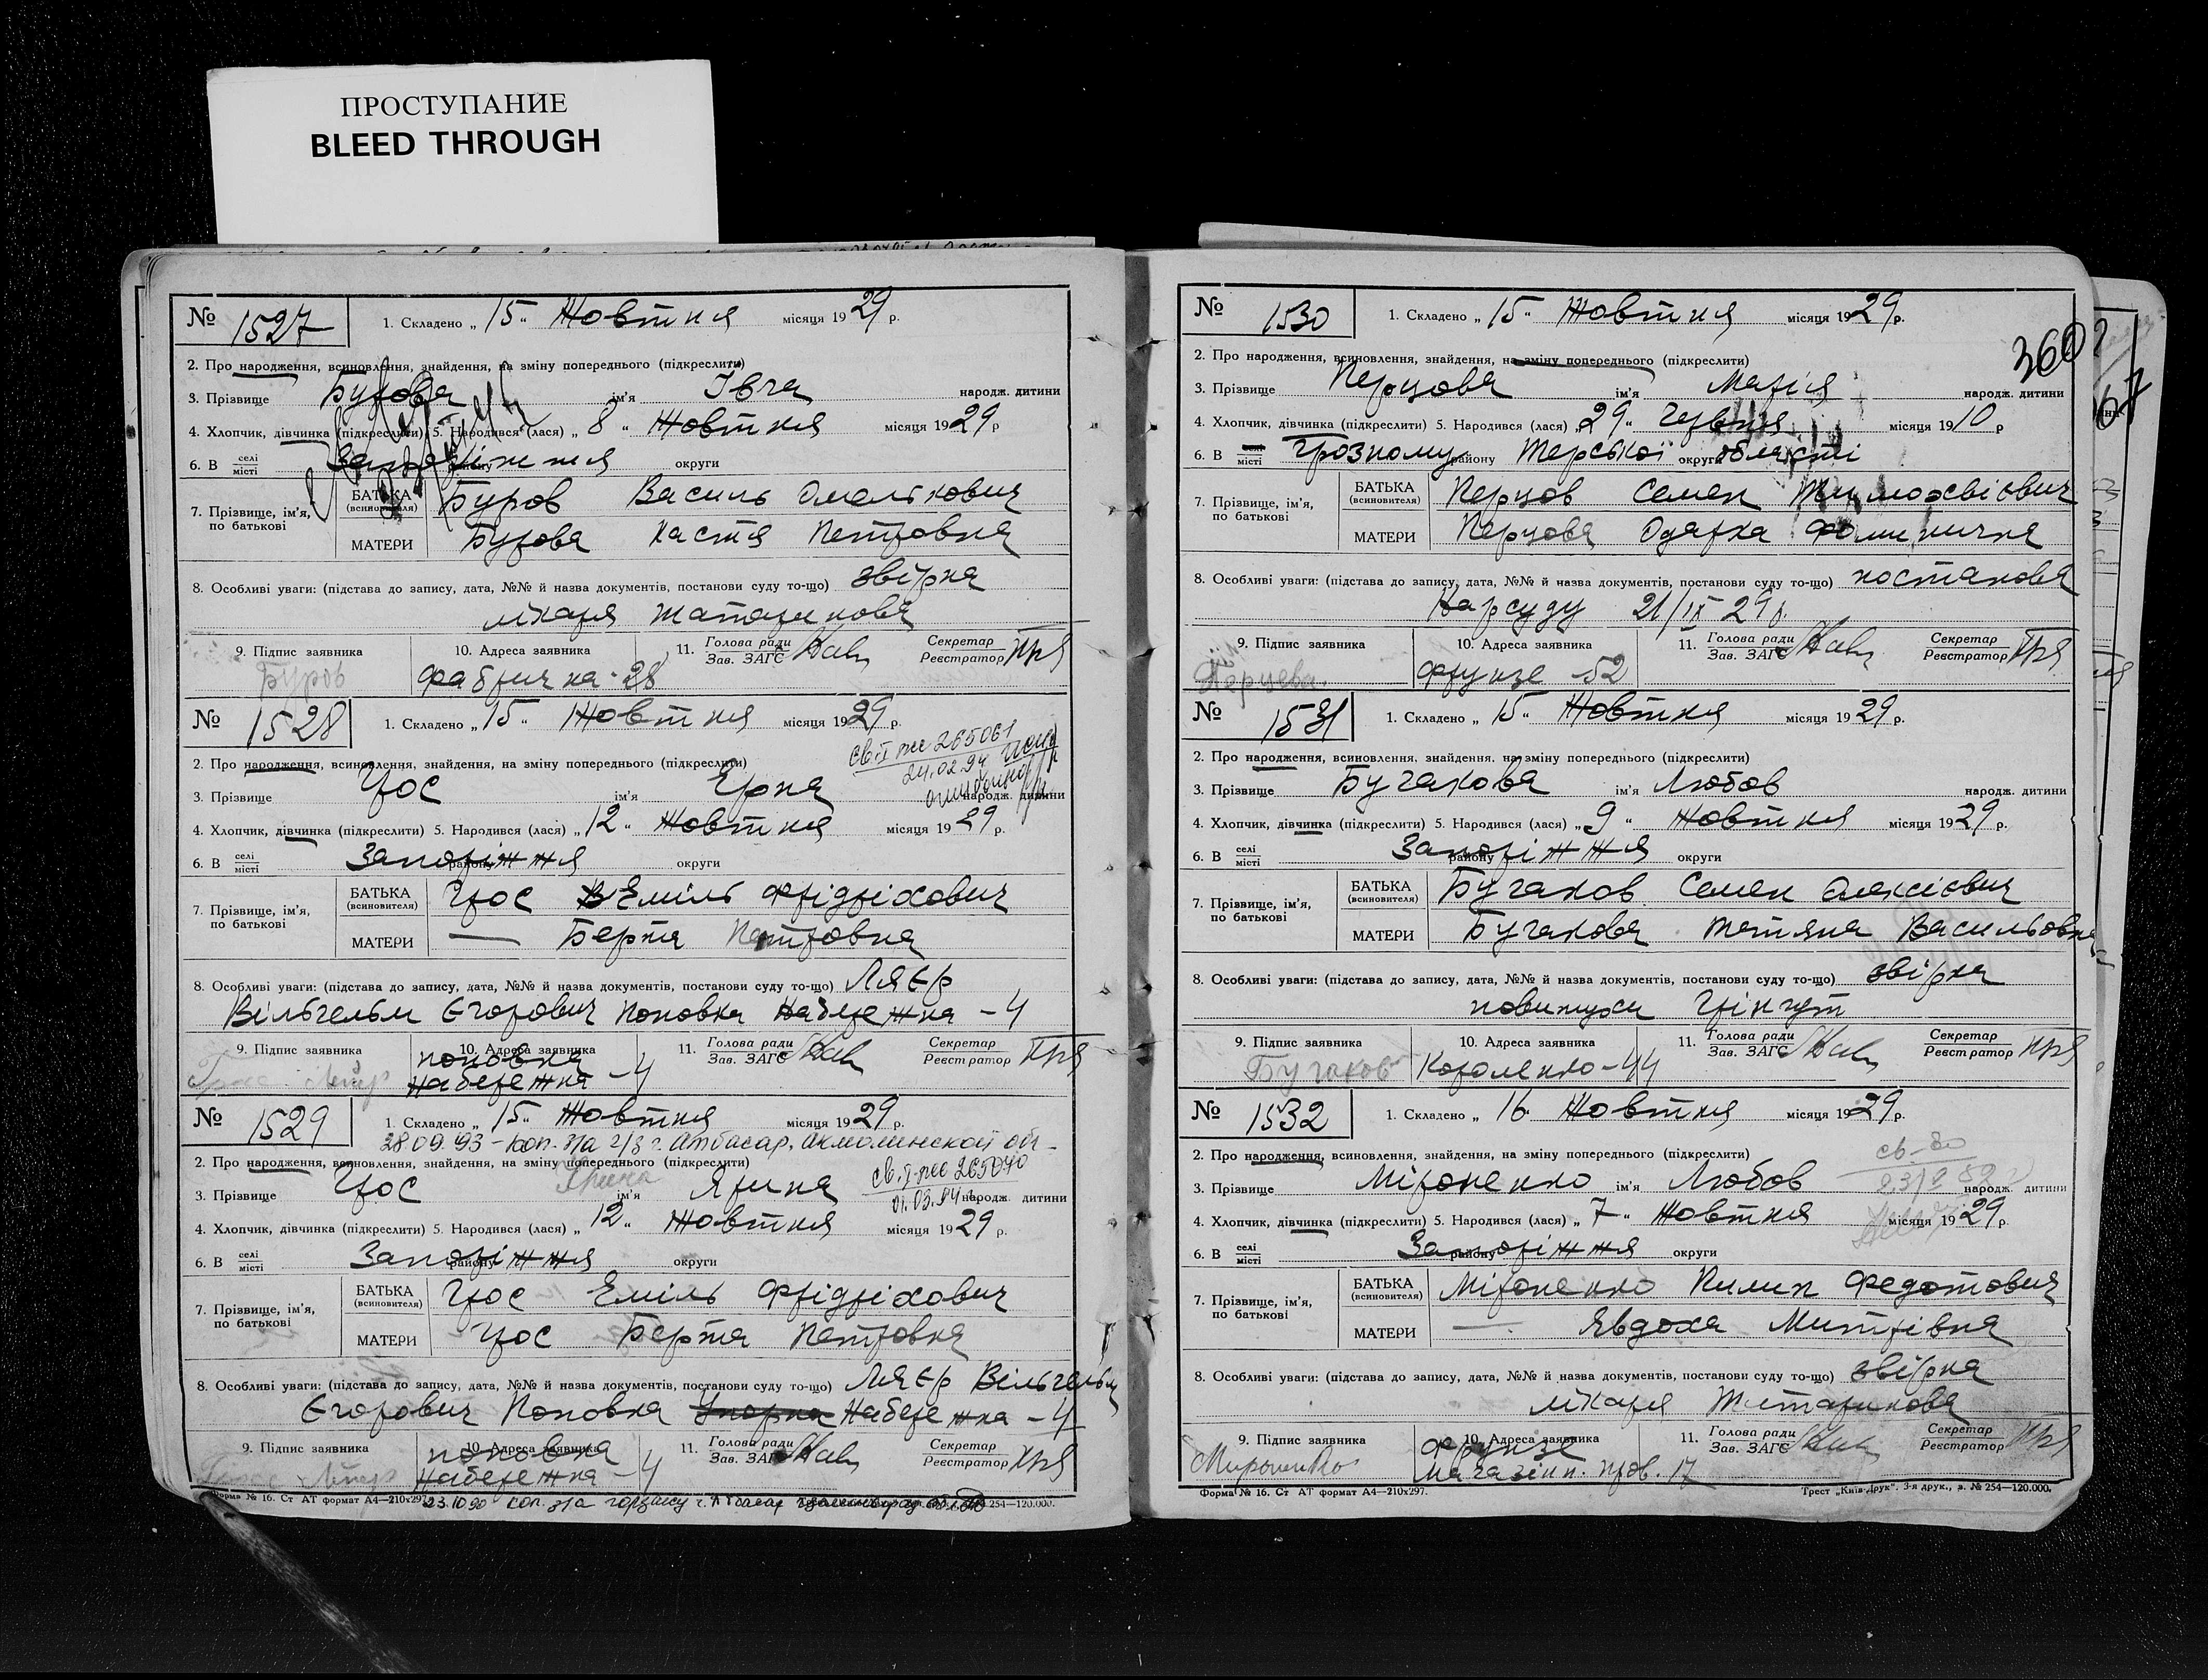 ПРОСТУПАНИЕ
BLEED THROUGH
№ 1527
1. Складено „ 15 “ Жовтня місяця 1929 р.
2. Про народження, всиновлення, знайдення, на зміну попереднього (підкреслити)
3. Прізвище Бурова ім'я Івга народж. дитини
4. Хлопчик, дівчинка (підкреслити) 5. Народився (лася) „ 8 “ Жовтня місяця 1929 р
6. В селі місті Запоріжжя району округи
7. Прізвище, ім'я, по батькові
БАТЬКА (всиновителя) Буров Василь Омелькович
МАТЕРИ Бурова Настя Петровна
8. Особливі уваги: (підстава до запису, дата, №№ й назва документів, постанови суду то-що) звірка
лікаря Татаринова
9. Підпис заявника Буров
10. Адреса заявника Фабрична 28
11. Голова ради Зав. ЗАГС
Секретар Реєстратор
№ 1528
1. Складено „ 15 “ Жовтня місяця 1929 р.
св. I жс 265061
24.02.94
2. Про народження, всиновлення, знайдення, на зміну попереднього (підкреслити)
3. Прізвище Грос ім'я Ерна народж. дитини
4. Хлопчик, дівчинка (підкреслити) 5. Народився (лася) „ 12 “ Жовтня місяця 1929 р.
6. В селі місті Запоріжжя району округи
7. Прізвище, ім'я, по батькові
БАТЬКА (всиновителя) Грос Еміль Фрідріхович
МАТЕРИ — Берта Петровна
8. Особливі уваги: (підстава до запису, дата, №№ й назва документів, постанови суду то-що) Ляєр
Вільгельм Єгорович Поповка Набережна - 4
9. Підпис заявника
10. Адреса заявника поповка Набережна - 4
11. Голова ради Зав. ЗАГС
Секретар Реєстратор
№ 1529
1. Складено „ 15 “ Жовтня місяця 1929 р.
28.09.93 - коп. г. Атбасар, Акмолинской обл
2. Про народження, всиновлення, знайдення, на зміну попереднього (підкреслити)
3. Прізвище Грос ім'я Ярина народж. дитини
св. I-жс 265090
01.03.94
4. Хлопчик, дівчинка (підкреслити) 5. Народився (лася) „ 12 “ Жовтня місяця 1929 р.
6. В селі місті Запоріжжя району округи
7. Прізвище, ім'я, по батькові
БАТЬКА (всиновителя) Грос Еміль Фрідріхович
МАТЕРИ Грос Берта Петровна
8. Особливі уваги: (підстава до запису, дата, №№ й назва документів, постанови суду то-що) Ляєр Вільгельм
Єгорович Поповка Набережна - 4
9. Підпис заявника
10. Адреса заявника поповка Набережна - 4
11. Голова ради Зав. ЗАГС
Секретар Реєстратор
Форма № 16. Ст АТ формат А4—210х297.
254—120.000.
23.10.90 коп.
№ 1530
1. Складено „ 15 “ Жовтня місяця 1929 р.
360
2. Про народження, всиновлення, знайдення, на зміну попереднього (підкреслити)
3. Прізвище Перцова ім'я Марія народж. дитини
4. Хлопчик, дівчинка (підкреслити) 5. Народився (лася) „ 29 “ Червня місяця 1910 р
6. В селі місті Грозному району Терської округи області
7. Прізвище, ім'я, по батькові
БАТЬКА (всиновителя) Перцов Семен Тимохвієвич
МАТЕРИ Перцова Одарка Фоминична
8. Особливі уваги: (підстава до запису, дата, №№ й назва документів, постанови суду то-що) постанова
Нарсуду 21/IX 29 р.
9. Підпис заявника Перцева.
10. Адреса заявника Фрунзе - 52
11. Голова ради Зав. ЗАГС
Секретар Реєстратор
№ 1531
1. Складено „ 15 “ Жовтня місяця 1929 р.
2. Про народження, всиновлення, знайдення, на зміну попереднього (підкреслити)
3. Прізвище Бугакова ім'я Любов народж. дитини
4. Хлопчик, дівчинка (підкреслити) 5. Народився (лася) „ 9 “ Жовтня місяця 1929 р.
6. В селі місті Запоріжжя району округи
7. Прізвище, ім'я, по батькові
БАТЬКА (всиновителя) Бугаков Семен Олексієвич
МАТЕРИ Бугакова Тетяна Васильовна
8. Особливі уваги: (підстава до запису, дата, №№ й назва документів, постанови суду то-що) звірка
повитухи Грінгут
9. Підпис заявника Бугаков
10. Адреса заявника Короленко - 44
11. Голова ради Зав. ЗАГС
Секретар Реєстратор
№ 1532
1. Складено „ 16 “ Жовтня місяця 1929 р.
2. Про народження, всиновлення, знайдення, на зміну попереднього (підкреслити)
3. Прізвище Міроненко ім'я Любов народж. дитини
4. Хлопчик, дівчинка (підкреслити) 5. Народився (лася) „ 7 “ Жовтня місяця 1929 р.
6. В селі місті Запоріжжя району округи
7. Прізвище, ім'я, по батькові
БАТЬКА (всиновителя) Міроненко Пилип Федотович
МАТЕРИ — Явдоха Митрівна
8. Особливі уваги: (підстава до запису, дата, №№ й назва документів, постанови суду то-що) звірка
лікаря Татаринова
9. Підпис заявника Мироненко
10. Адреса заявника Фрунзе Магазінн. пров. 17
11. Голова ради Зав. ЗАГС
Секретар Реєстратор
Форма № 16. Ст АТ формат А4—210х297.
Трест „Київ-Друк". 3-я друк., з. № 254—120.000.